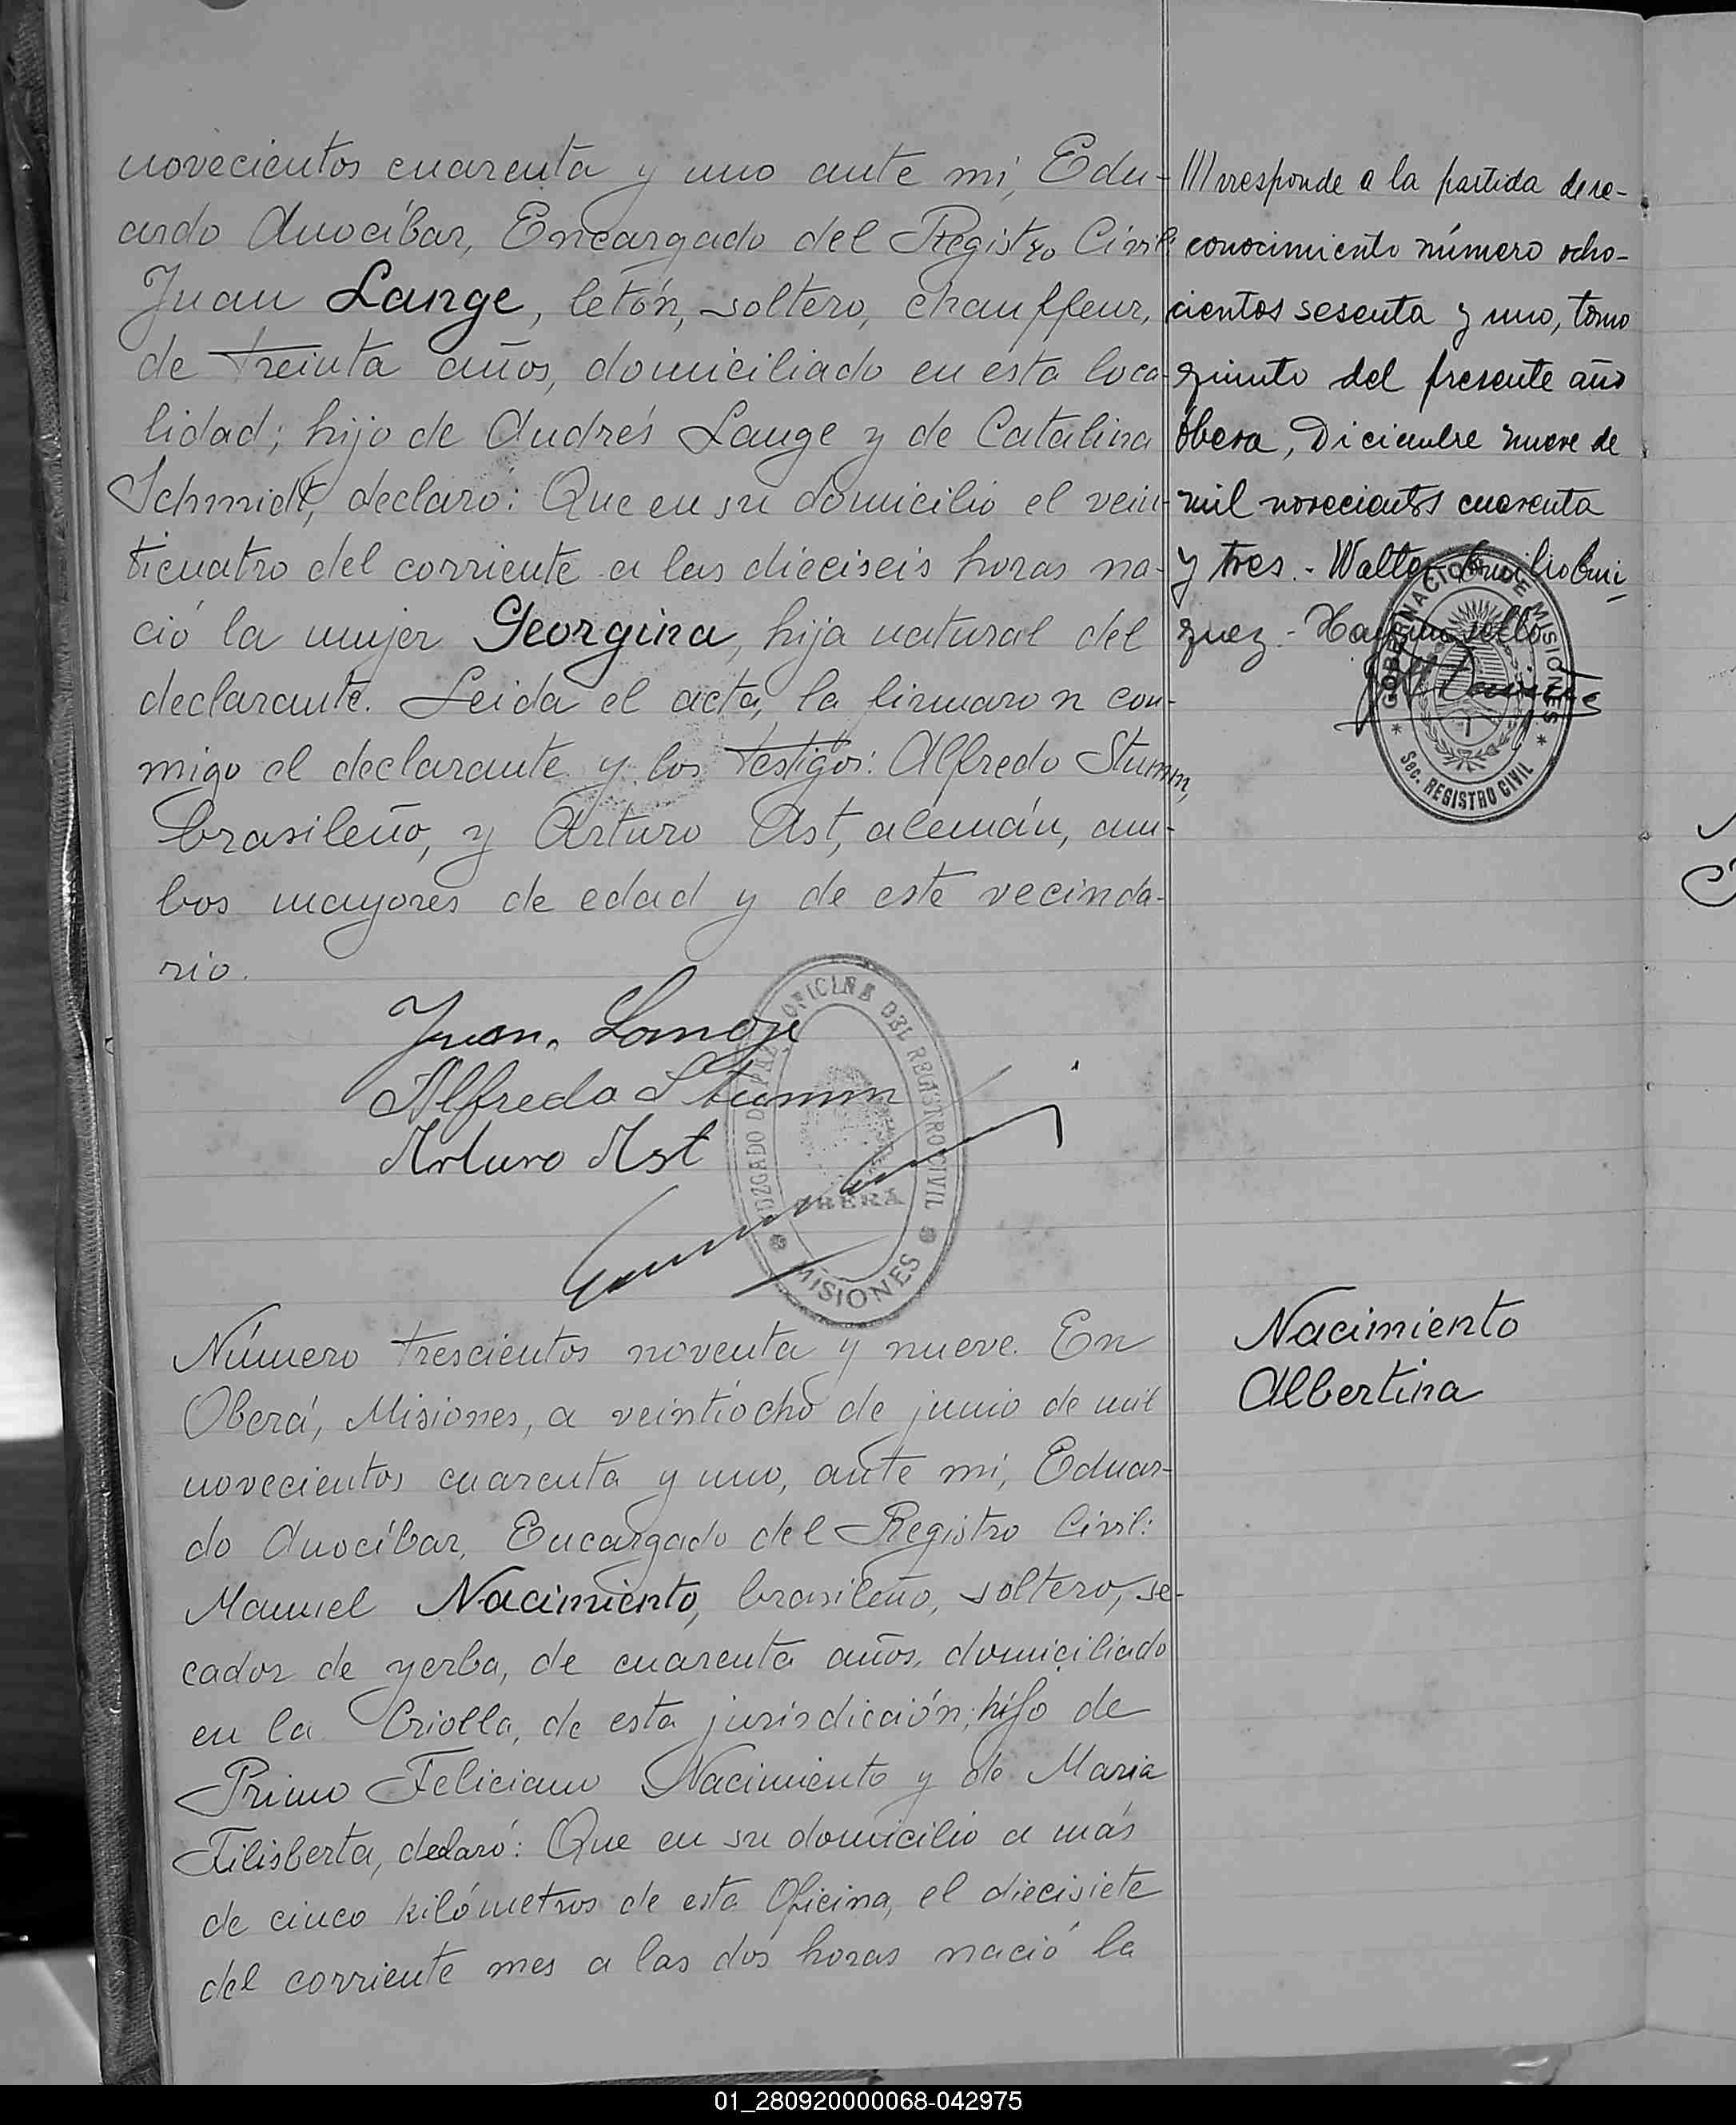 novecientos cuarenta y uno ante mi, Edu-
ardo Anocíbar, Encargado del Registro Civil:
Juan Lange, letón, soltero, chauffeur,
de treinta años, domiciliado en esta loca-
lidad; hijo de Andrés Lange y de Catalina
Schmidt, declaró: Que en su domicilio el vein-
ticuatro del corriente a las dieciseis horas na-
ció la mujer Georgina, hija natural del
declarante. Leida el acta, la firmaron con-
migo el declarante y los testigos: Alfredo Stumm,
brasileño, y Arturo Ast, alemán, am-
bos mayores de edad y de este vecinda-
rio.
Juan. Lange
Alfredo Stumm
Arturo Ast
JUZGADO DE PAZ Y OFICINA DEL REGISTRO CIVIL
OBERÁ
MISIONES
///rresponde a la partida de re-
conocimiento número ocho-
cientos sesenta y uno, tomo
quinto del presente año
Obera, Diciembre nueve de
mil novecientos cuarenta
y tres.- Walter
quez.- Hay un sello
GOBERNACION DE MISIONES
Sec. REGISTRO CIVIL
Número trescientos noventa y nueve. En
Oberá, Misiones, a veintiocho de junio de mil
novecientos cuarenta y uno, ante mi, Eduar-
do Anocíbar, Encargado del Registro Civil:
Manuel Nacimiento, brasileño, soltero, se-
cador de yerba, de cuarenta años, domiciliado
en la Criolla, de esta jurisdicción; hijo de
Primo Feliciano Nacimiento y de Maria
Filisberta, declaró: Que en su domicilio a más
de cinco kilómetros de esta Oficina, el diecisiete
del corriente mes a las dos horas nació la
Nacimiento
Albertina
01_280920000068-042975